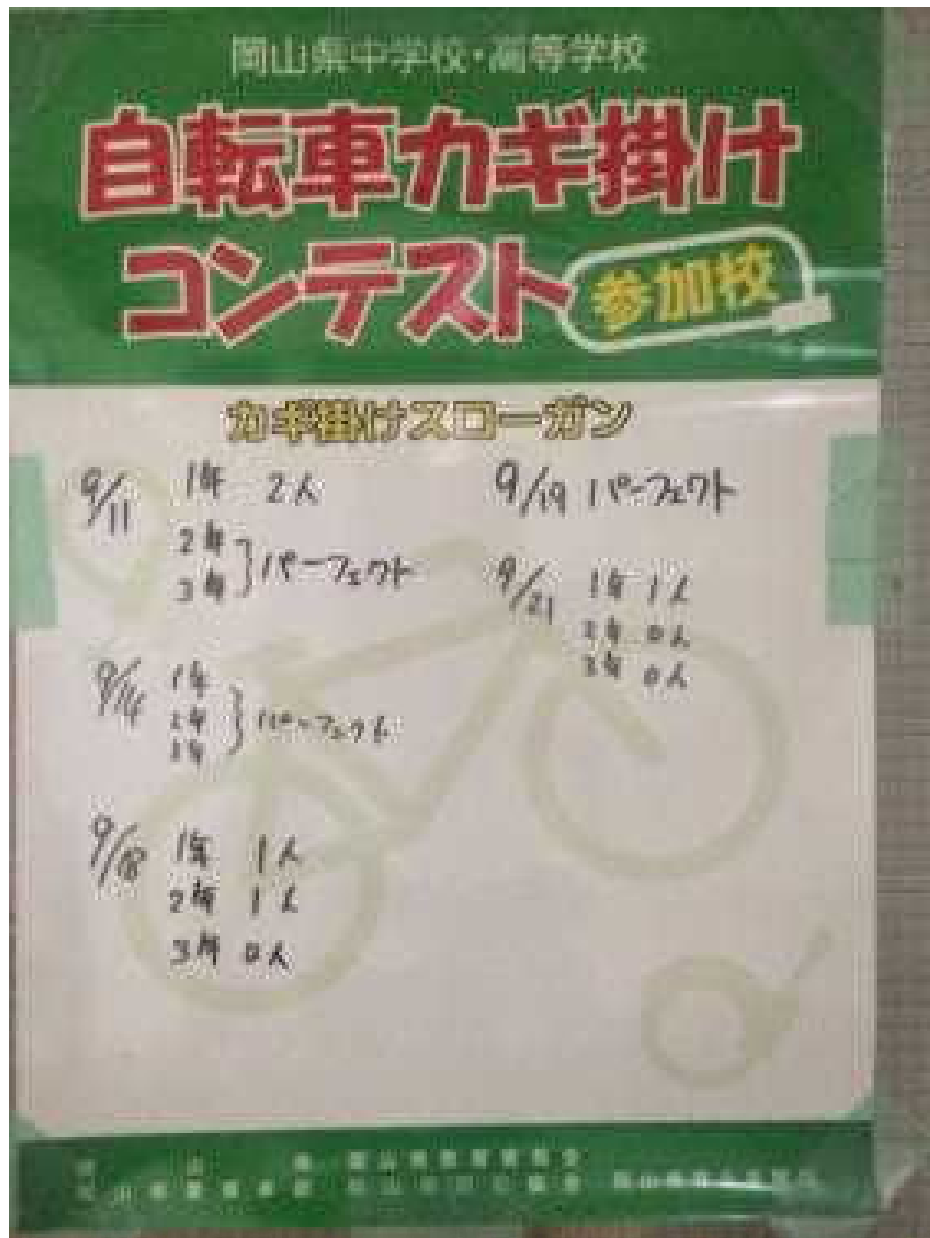 岡山県中学校・高等学校
自転車カギ掛け
コンテスト 参加校
カギ掛けスローガン
9/11 1年 2人
2年
3年 パーフェクト
9/14 1年
2年
3年 パーフェクト
9/18 1年 1人
2年 1人
3年 0人
9/19 パーフェクト
9/21 1年 1人
2年 0人
3年 0人